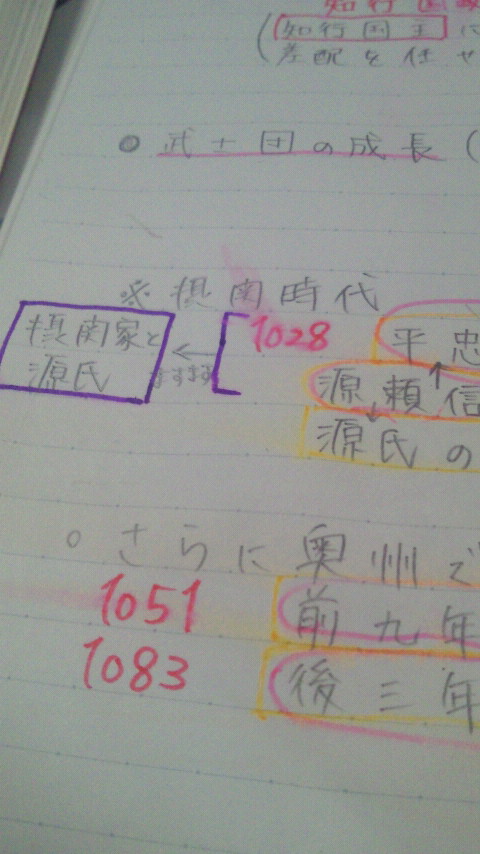 知行国
(知行国主に
差配を任せ
◎ 武士団の成長(
※ 摂関時代
摂関家と
源氏
ますます
1028 平忠
源頼信
源氏の
○ さらに奥州で
1051 前九年
1083 後三年